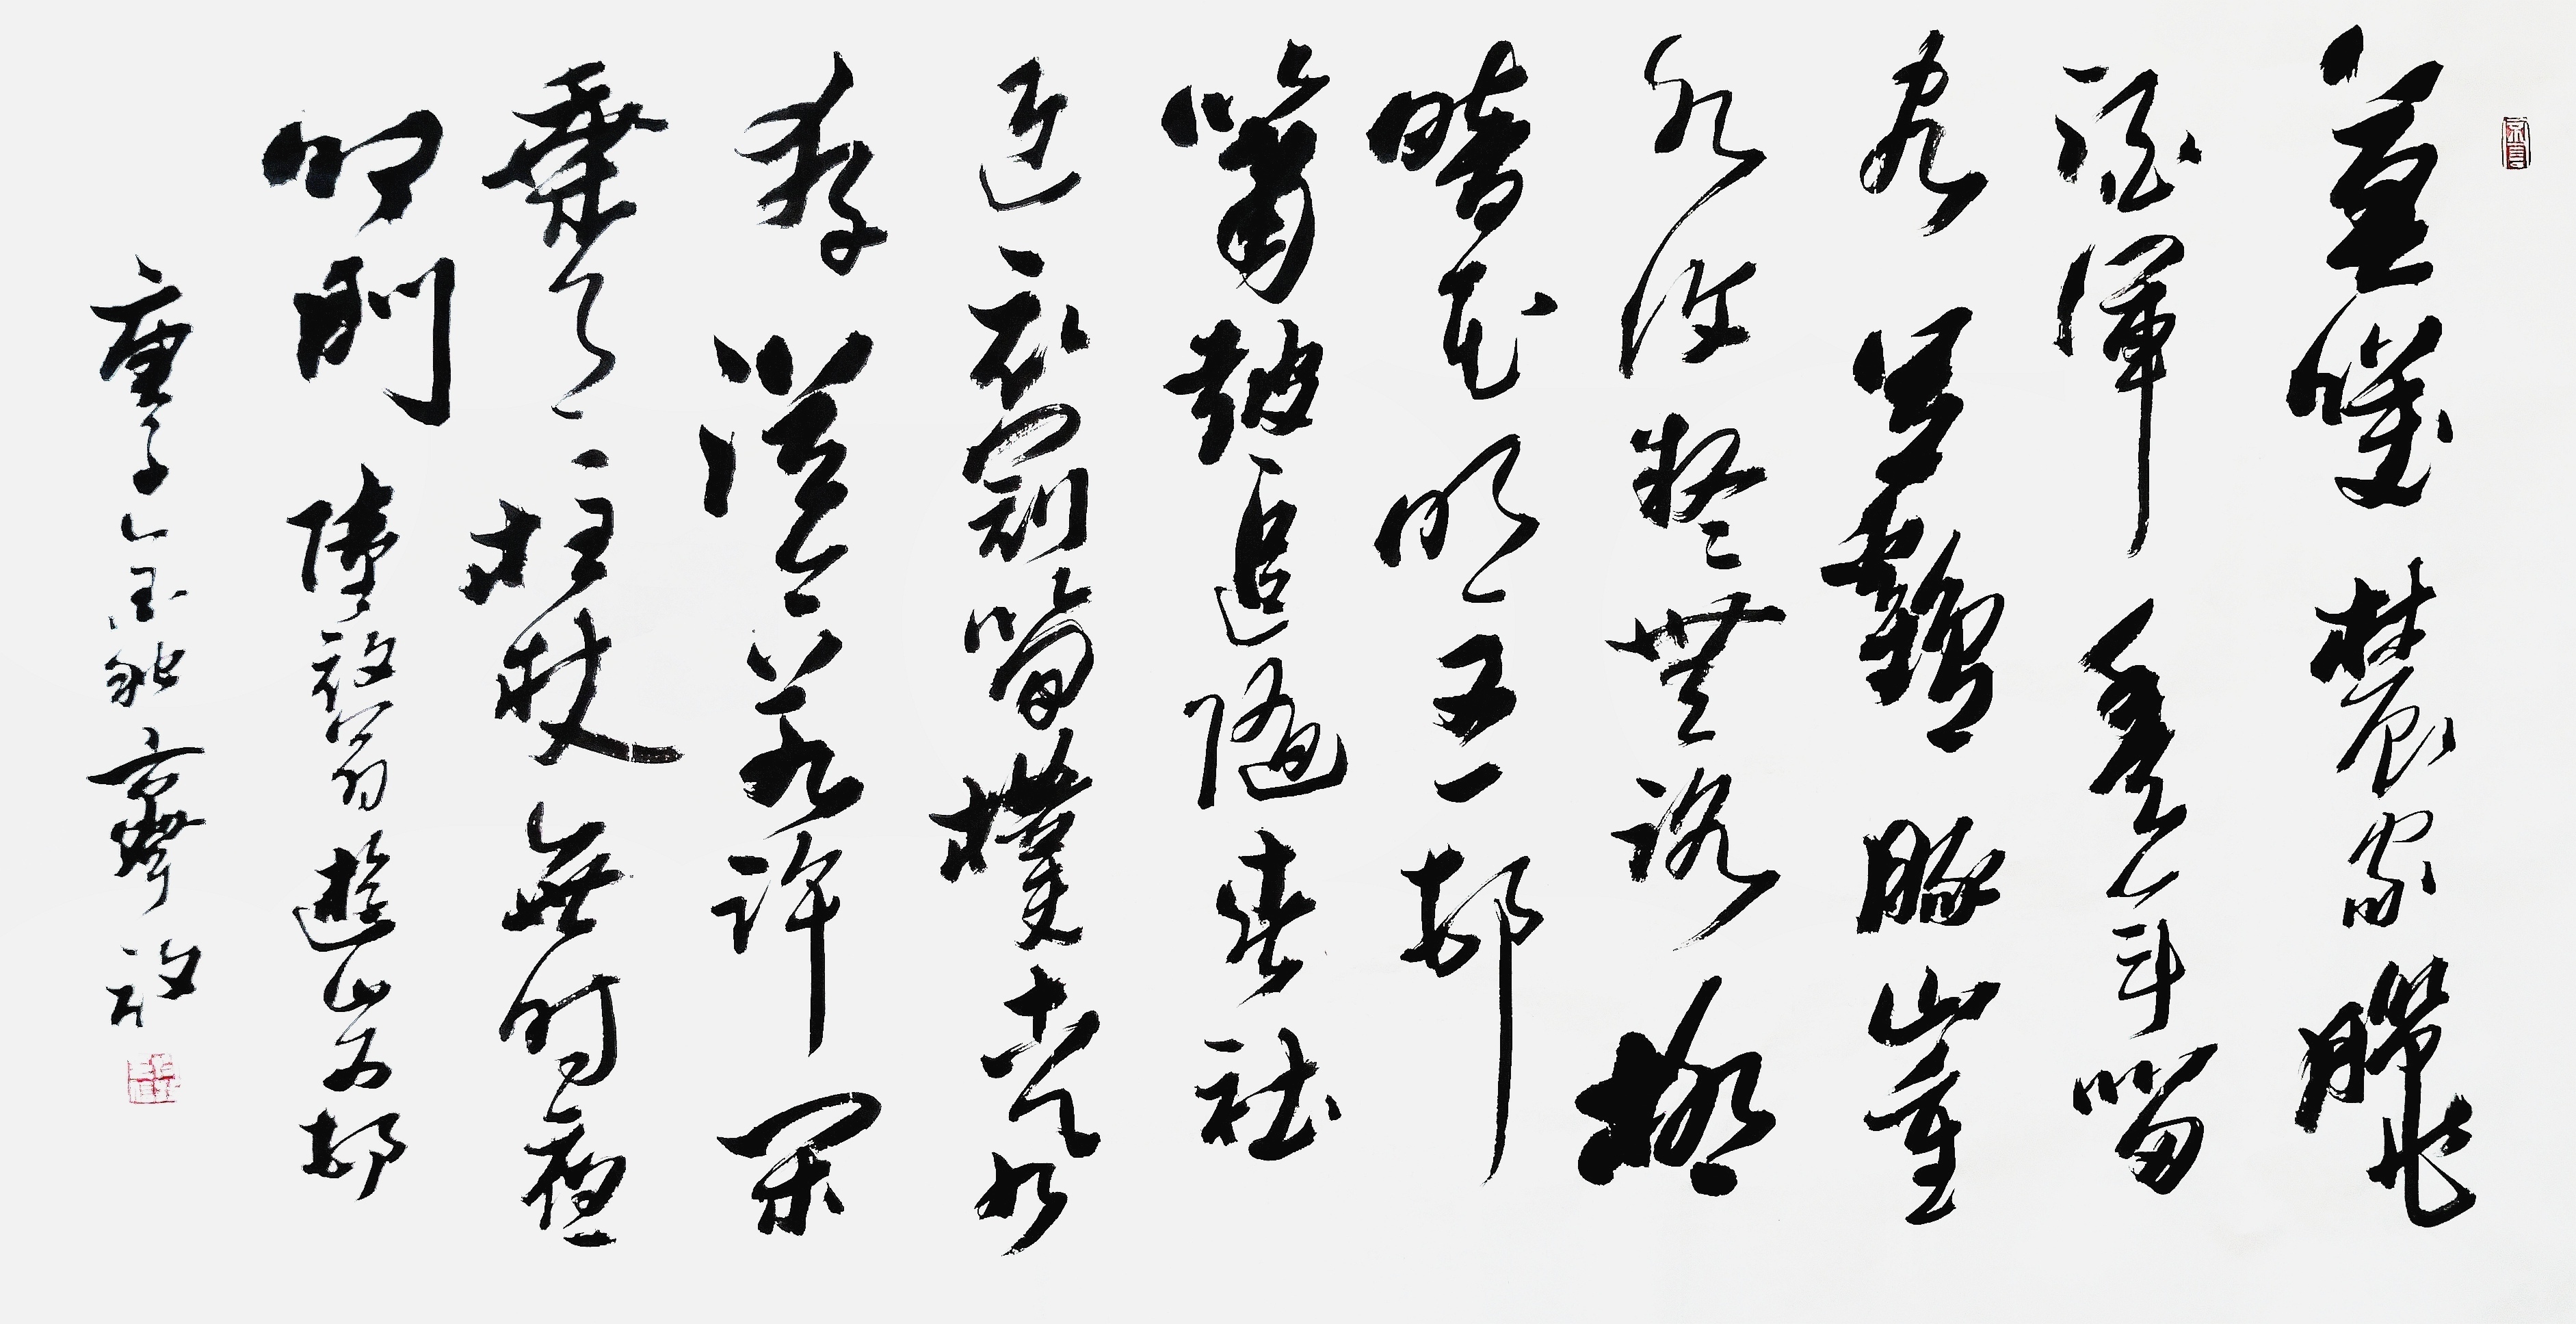 莫笑農家臘
酒渾豐年留
客足雞豚山重
水複疑無路柳
暗花明又一村
簫鼓追隨春社
近衣冠簡樸古風
存從今若許閑
乘月拄杖無時夜
叩門 陸放翁遊山西村
庚子